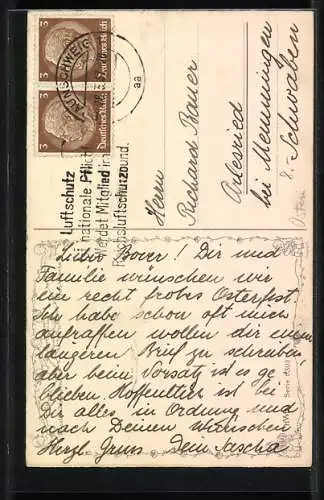 3 Deutsches Reich
3 Deutsches Reich
BRAUNSCHWEIG
aa
Luftschutz
nationale Pflicht
Werdet Mitglied im
Reichsluftschutzbund.
Herrn
Richard Bauer
Arlesried
bei Memmingen
Schwaben
Ostern
Lieber Bauer! Dir und
Familie wünschen wir
ein recht frohes Osterfest.
Ich habe schon oft mich
aufraffen wollen dir einen
längeren Brief zu schreiben,
aber beim Vorsatz ist es ge
blieben. Hoffentlich ist bei
Dir alles in Ordnung und
nach Deinen Wünschen
Herzl. Gruss Dein Sascha
Serie